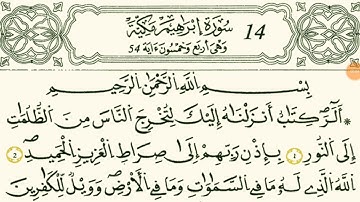 سُورَةُ إِبْرَاهِيمَ مَكِّيَّةٌ 14
وَهِيَ أَرْبَعٌ وَخَمْسُونَ ءَايَةً 54
بِسْمِ اللَّهِ الرَّحْمَٰنِ الرَّحِيمِ
* أَلَٓرَ كِتَٰبٌ أَنزَلْنَٰهُ إِلَيْكَ لِتُخْرِجَ النَّاسَ مِنَ الظُّلُمَٰتِ
إِلَى النُّورِ 1 بِإِذْنِ رَبِّهِمْ إِلَىٰ صِرَٰطِ الْعَزِيزِ الْحَمِيدِ 2
اللَّهِ الَّذِي لَهُ مَا فِي السَّمَٰوَٰتِ وَمَا فِي الْأَرْضِ وَوَيْلٌ لِّلْكَٰفِرِينَ